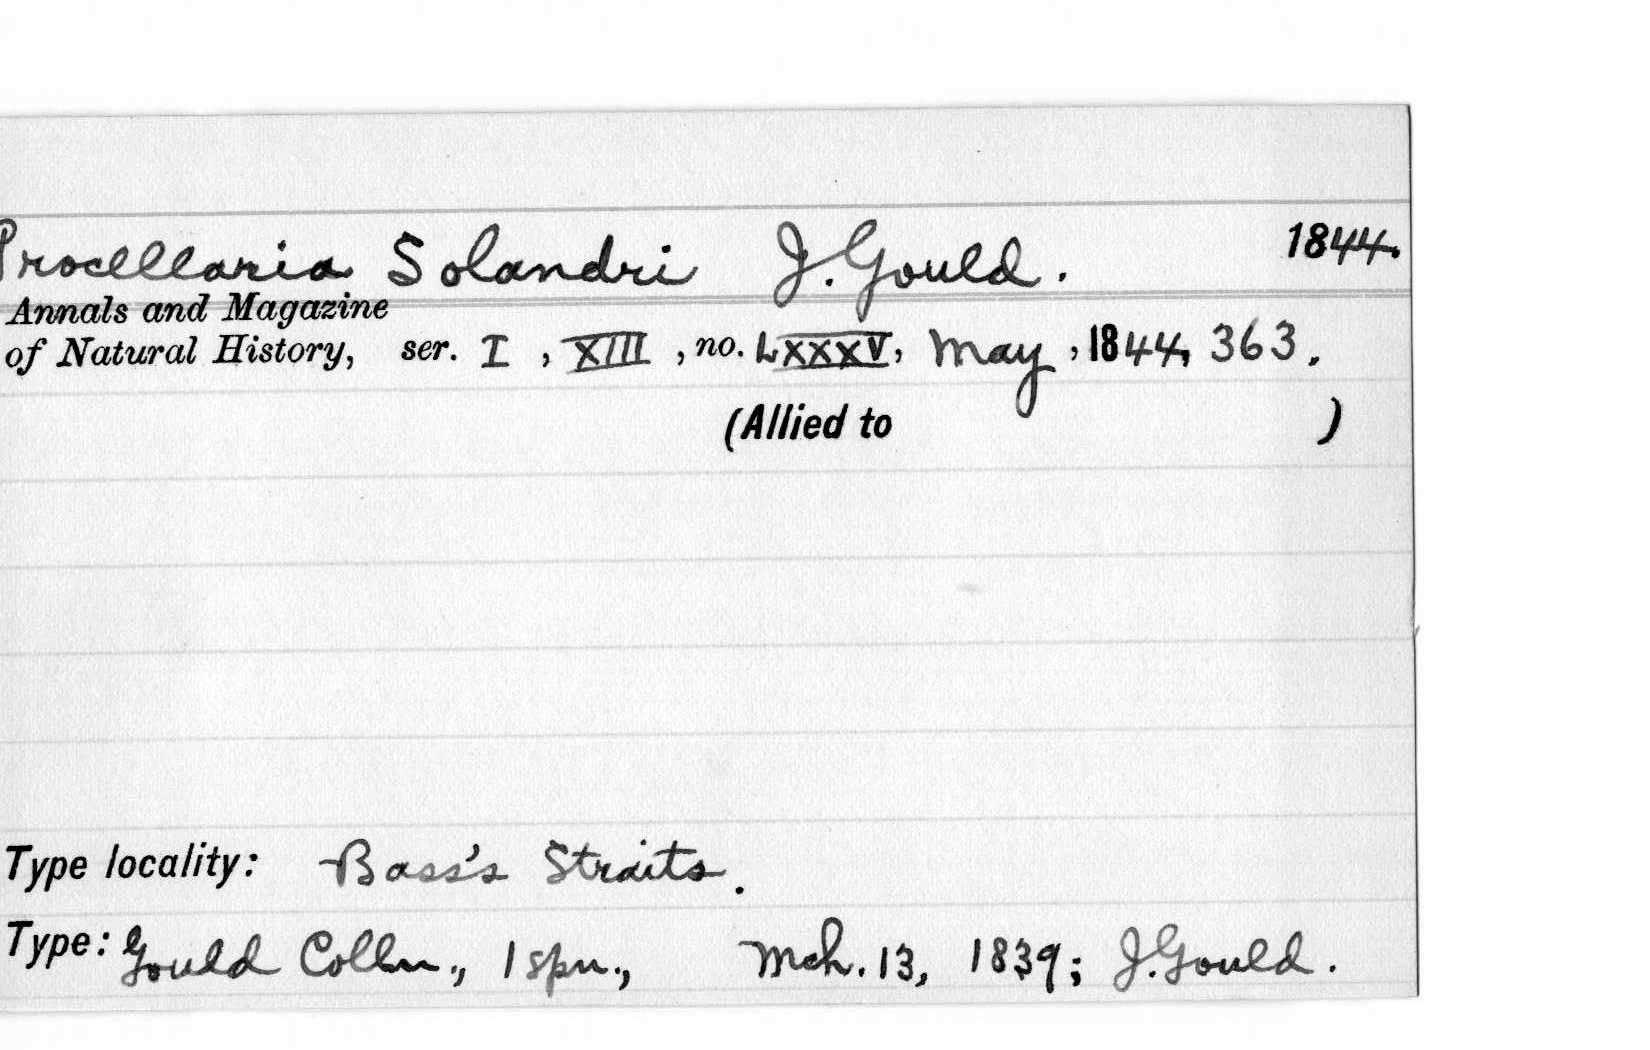 Procellaria Solandri J. Gould. 1844.
Annals and Magazine
of Natural History, ser. I, XIII, no. LXXXV, May, 1844, 363.
(Allied to )
Type locality: Bass's Straits.
Type: Gould Colln., 1 spn., Mch. 13, 1839; J. Gould.